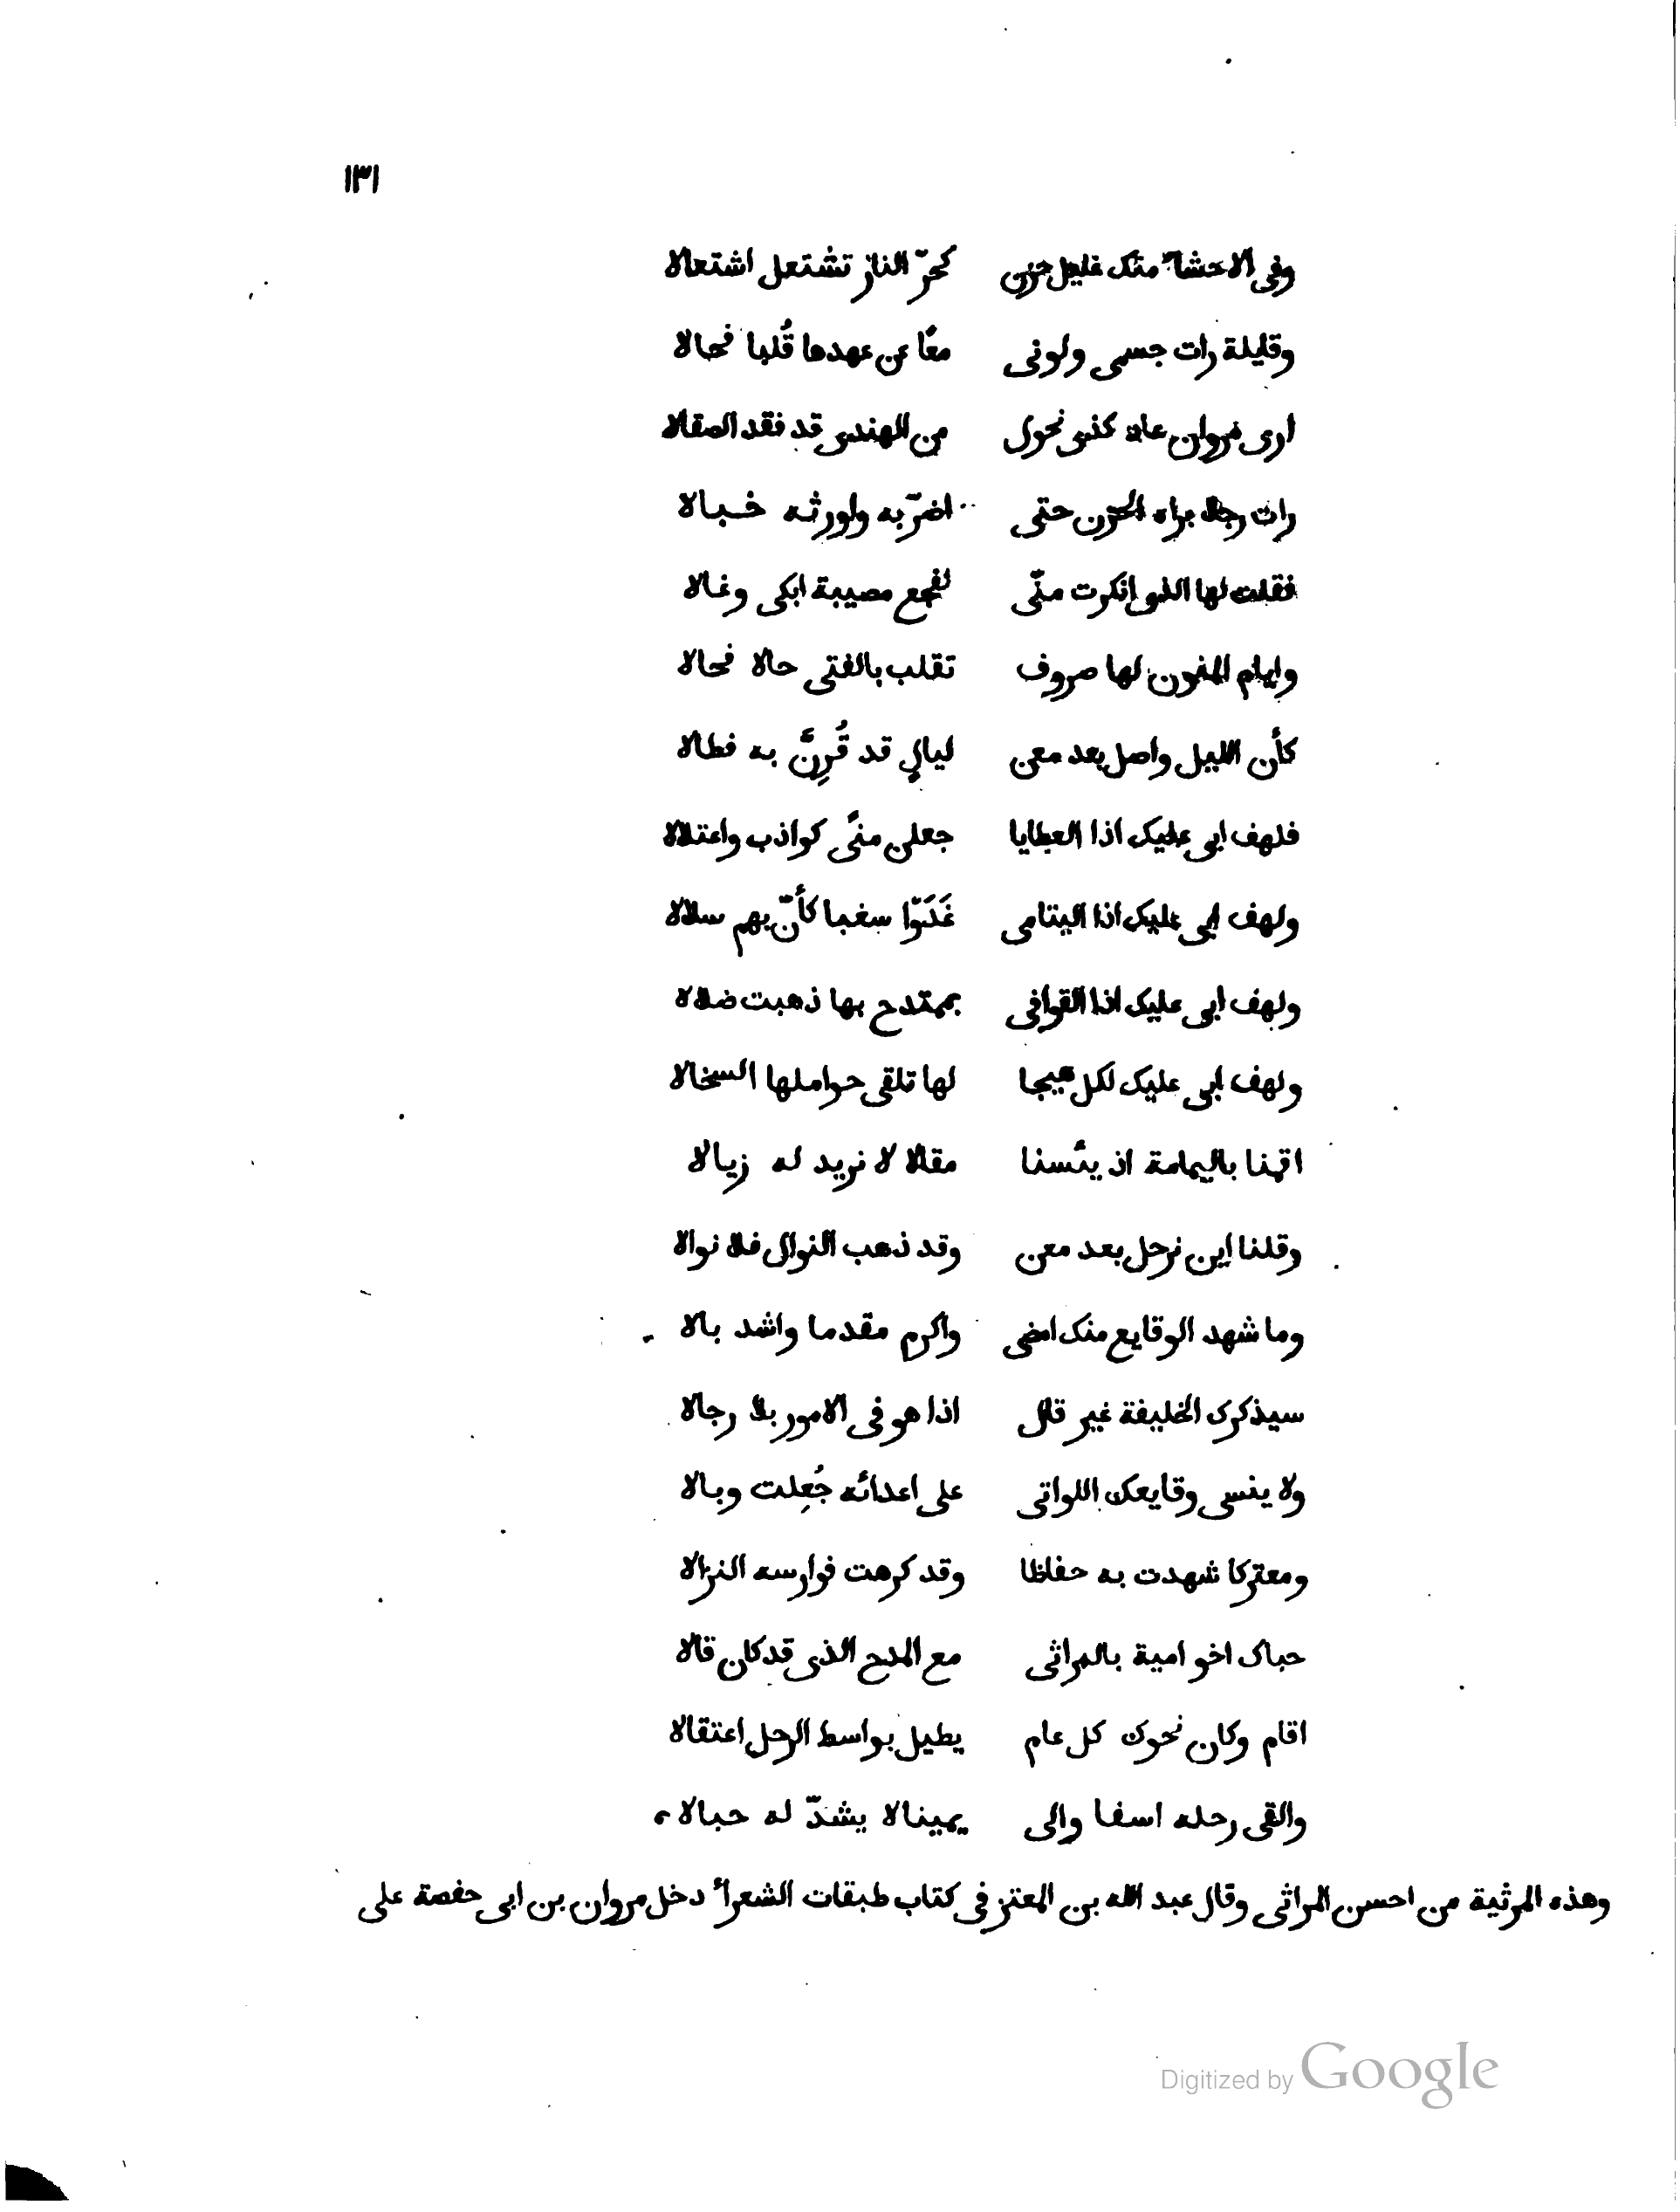 ١٣١
وفى الاحشاء منك غليل حزن كحرّ النار تشتعل اشتعالا
وقايلة رات جسمى ولونى معًا عن عهدها قُلبا فحالا
ارى مروان عاد كذى نحول من الهندى قد فقد الصقالا
رات رجلا براه الحزن حتى اضرّ به واورثه خبالا
فقلت لها الذى انكرت منّى لفجع مصيبة ابكى وغالا
وايام المنون لها صروف تقلب بالفتى حالا فحالا
كأن الليل واصل بعد معن ليالٍ قد قُرِنَّ به فطالا
فلهف ابى عليك اذا العطايا جعلن منًى كواذب واعتلالا
ولهف ابى عليك اذا اليتامى غَدَوّا سغبا كأنّ بهم سلالا
ولهف ابى عليك اذا القوافى بممتدح بها ذهبت ضلالا
ولهف ابى عليك لكل هيجا لها تلقى حواملها السخالا
اقمنا باليمامة اذ يئسنا مقالا لا نريد له زيالا
وقلنا اين نرحل بعد معن وقد ذهب النوال فلا نوالا
وما شهد الوقايع منك امضى واكرم مقدما واشد بالا
سيذكرك الخليفة غير قال اذا هو فى الامور بلا رجالا
ولا ينسى وقايعك اللواتى على اعدائه جُعِلت وبالا
ومعتركا شهدت به حفاظا وقد كرهت فوارسه النزالا
حباك اخو امية بالمراثى مع المدح الذى قد كان قالا
اقام وكان نحوك كل عام يطيل بواسط الرحل اعتقالا
والقى رحله اسفا والى يمينا لا يشدّ له حبالا
وهذه المرثية من احسن المراثى وقال عبد الله بن المعتز فى كتاب طبقات الشعراء دخل مروان بن ابى حفصة على
Digitized by Google